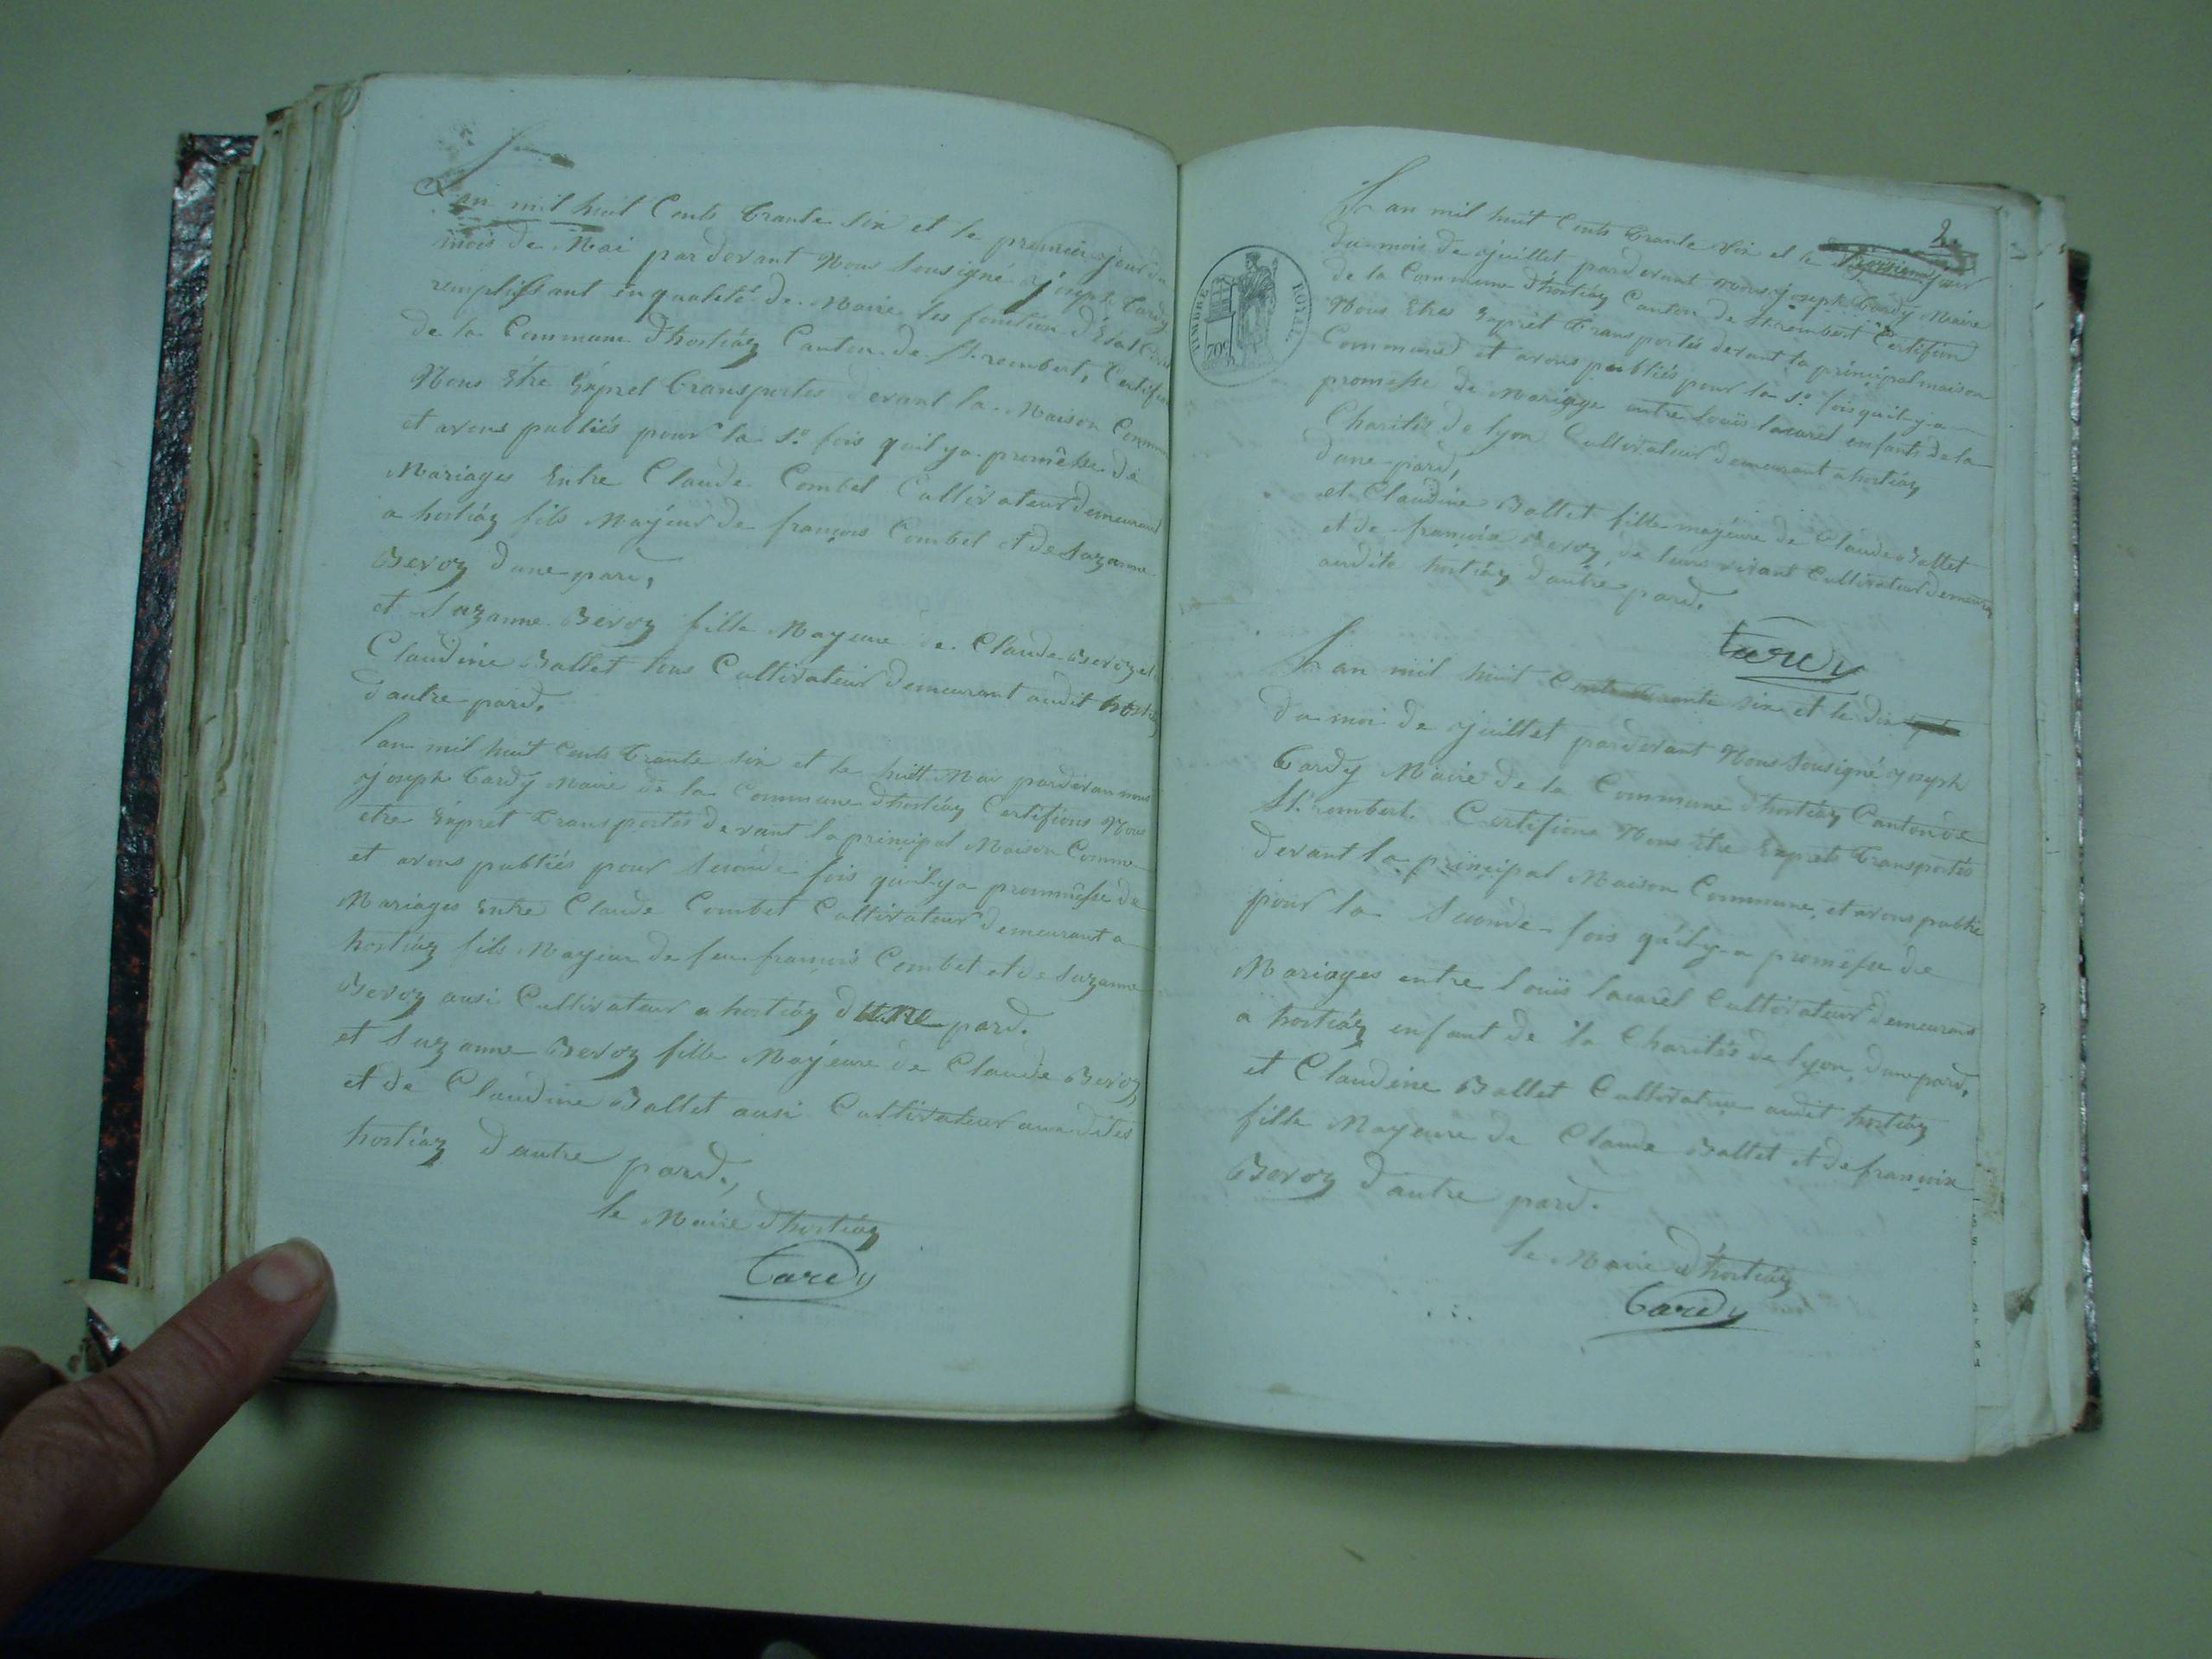 L'an mil huit Cents trante six et le premier jour du
mois de Mai pardevant Nous Sousigné joseph tardy
remplissant en qualité de Maire les fonction d'État Civil
de la Commune d'hostiaz Canton de St. rembert, Certifion
Nous Être Expret transportes devant la Maison Commune
et avons publiés pour la 1e. fois quil ya promesse de
Mariages Entre Claude Combet Cultivateur demeurant
a hostiaz fils Mayeur de françois Combet et de Suzanne
Bevoz dune pard,
et Suzanne Bevoz fille Mayeure de Claude Bevoz et
Claudine Ballet tous Cultivateur demeurant audit hostiaz
dautre pard.
lan mil huit Cents trante six et le huit Mai pardevan nous
joseph tardy Maire de la Commune dhostiaz Certifions Nous
etre Expret transportés devant la principal Maison Commune
et avons publiés pour seconde fois quil ya prommesse de
Mariages Entre Claude Combet Cultivateur demeurant a
hostiaz fils Mayeur de feu françois Combet et de Suzanne
Bevoz ausi Cultivateur a hostiaz dune pard.
et Suzanne Bevoz fille Mayeure de Claude Bevoz
et de Claudine Ballet ausi Cultivateur
hostiaz dautre pard,
le Maire dhostiaz
tardy
2
TIMBRE ROYAL
70c
L'an mil huit Cents trante six et le jour
du mois de juillet pardevant nous joseph tardy Maire
de la Commune d'hostiaz Canton de St. rembert Certifion
Nous Etres Exprêt transportés devant la principal maison
Commune et avons publiés pour la 1e. fois quil y a
promesse de Mariage entre Louïs lacarel enfants de la
Charités de lyon Cultivateur demeurant a hostiaz
dune pard,
et Claudine Ballet fille mayeure de Claude Ballet
et de françoise Bevoz de leurs vivant Cultivateur demeurant
audite hostiaz dautre pard.
tardy
L'an mil huit Cents trante six et le dix
du moi de juillet pardevant Nous Sousigné joseph
tardy Maire de la Commune d'hostiaz Canton de
St. rembert. Certifions Nous Être Exprêt transportés
devant la principal Maison Commune, et avons publié
pour la seconde fois quil y a promesse de
Mariages entre Louïs lacarel Cultivateur demeurant
a hostiaz enfant de la Charités de lyon, dune pard,
et Claudine Ballet Cultivatrice audit hostiaz
fille Mayeure de Claude Ballet et de françoise
Bevoz d'autre pard.
le Maire d'hostiaz
tardy